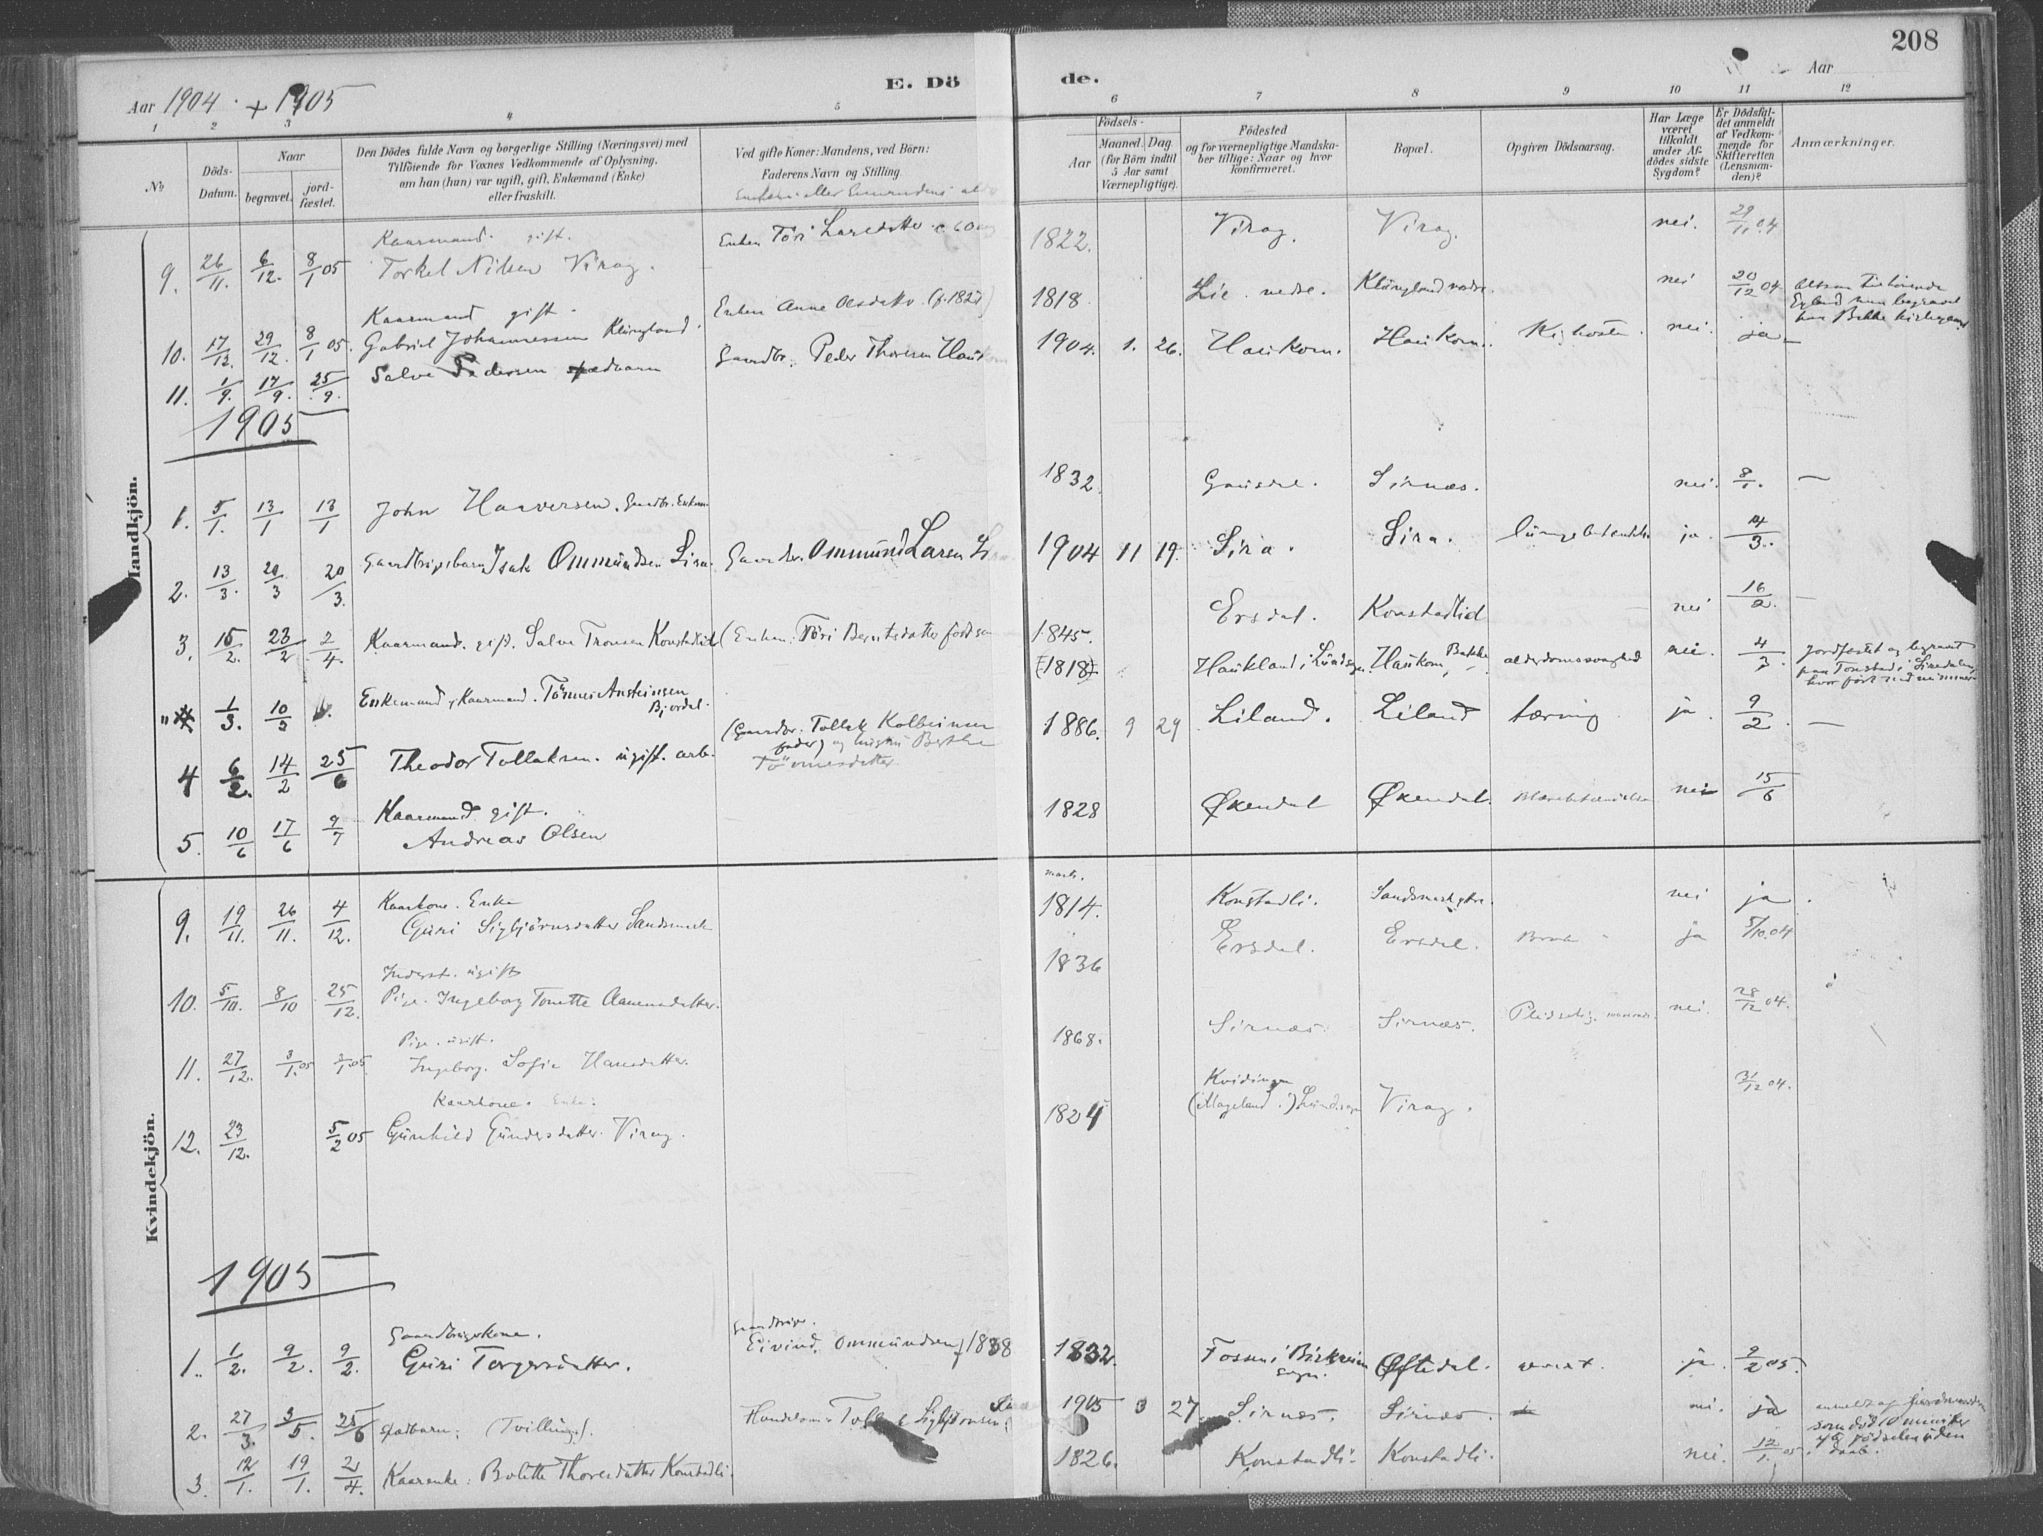 208
Aar 1904 + 1905
E. Döde.
Aar
1 2 3 4 5 6 7 8 9 10 11 12
No
Döds-Datum.
Naar
begravet.
jordfæstet.
Den Dödes fulde Navn og borgerlige Stilling (Næringsvei) med
Tilföiende for Voxnes Vedkommende af Oplysning,
om han (hun) var ugift, gift, Enkemand (Enke)
eller fraskilt.
Ved gifte Koner: Mandens, ved Börn:
Faderens Navn og Stilling
Födsels-
Aar
Maaned. Dag.
(for Börn indtil
5 Aar samt
Værnepligtige).
Födested
og for værnepligtige Mandska-
ber tillige: Naar og hvor
konfirmeret.
Bopæl.
Opgiven Dödsaarsag.
Har Læge
været
tilkaldt
under Af-
dödes sidste
Sygdom?
Er Dödsfal-
det anmeldt
af Vedkom-
mende for
Skifteretten
(Lensman-
den)?
Anmærkninger.
Mandkjön.
Kaarmand. gift.
9. 26/11. 6/12. 8/1 05 Torkel Nilsen Virag. Enken Töri Larsdatter 1822. Virag. Virag. nei. 29/11.04
Kaarmand gift.
10. 17/12 29/12. 8/1 05. Gabriel Johannessen Klungland. Enken Anne Olsdatter 1818 Lie nedre. Klungland nedre. nei 20/12 04
11. 1/9. 17/9. 25/9. Salve Pedersen spædbarn Gaardbr. Peder Thorsen Hauk 1904. 1. 26. Haukom. Haukom. Kighoste. nei. ja
1905
1. 5/1. 13/1 13/1 John Haaversen. Gaardbr. Enkem 1832. Gausdal. Sirnæs. nei. 8/1. —
2. 13/3. 20/3 20/3. Gaardbrugsbarn Isak Ommundsen Sira. Ommund Larsen 1904 11 19. Sira. Sira. lungebetændelse ja. 14/3. —
3. 15/2. 23/2 2/4. Kaarmand. gift. Salve Tronsen Konstadlid (Enken: Töri Berntsdatter 1845. Ersdal. Konstadlid nei 16/2. —
" 1/3. 10/3 Enkemand, Kaarmand. Tönnes Austeinsen Bjordal. (1818) Haukland i Lundsogn. Haukom, Bakke alderdomssvaghed nei. 4/3. jordfæstet og begravet
paa Tonstad i Siredalen,
4 6/2. 14/2 25/6 Theodor Tollaksen. ugift. arb. (Gaardbr. Tollak Kolbeinsen
fader) og hustru Berthe
Tönnesdatter. 1886. 9 29 Liland. Liland tæring ja. 9/2 —
Kaarmand gift.
5. 10/6 17/6 9/7 Andreas Olsen 1828 Økendal Økendal. Blærebetændelse nei 15/6
Kvindekjön.
Kaarkone. Enke
9. 19/11. 26/11. 4/12. Guri Sigbjörnsdatter Sandsmark 1814. Konstadli. Sandsmark nei ja.
Inderst. ugift
10. 5/10. 8/10 25/12. Pige. Ingeborg Tonette 1836 Ersdal. Ersdal. Brok ja 5/10.04
Pige. ugift.
11. 27/12. 3/1.05 3/1.05 Ingeborg Sofie Hansdatter. 1868. Sirnæs. Sirnæs. nei. 28/12 04.
Kaarkone. Enke.
12. 23/12. 5/2 05 Gunhild Gundersdatter. Virag. 1824 Kvidingen
(Mageland.) Lundsogn Virag. 31/12 04.
1905
Gaardbrugskone.
1. 1/2. 9/2. 9/2. Guri Torgersdatter. Gaardbruger.
Eivind Ommundsen f 1838 1832. Fossen i Birkreim
sogn. Øftedal. ja. 9/2 05.
2. 27/3. 3/5. 25/6 spædbarn; (Tvilling). Handelsm. Tollak Sigbjörnsen 1905 3 27. Sirnæs. Sirnæs. nei. ja anmeldt af jordmoderen
som död 10 minuter
efter födselen uden
daab.
3. 12/1. 19/1 2/4. Kaarenke: Bolette Thoresdatter Konstadli. 1826. Konstadli. Konstadli. nei. 12/1. 05